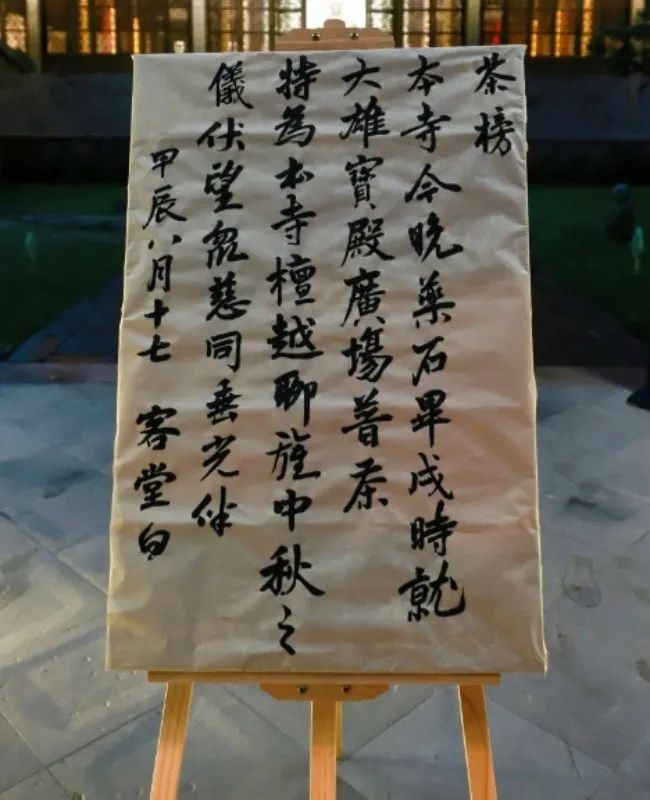 茶榜
本寺今晚藥石畢戌時就
大雄寶殿廣場普茶
特為本寺檀越聊旌中秋之
儀伏望眾慈同垂光伴
甲辰八月十七 客堂白